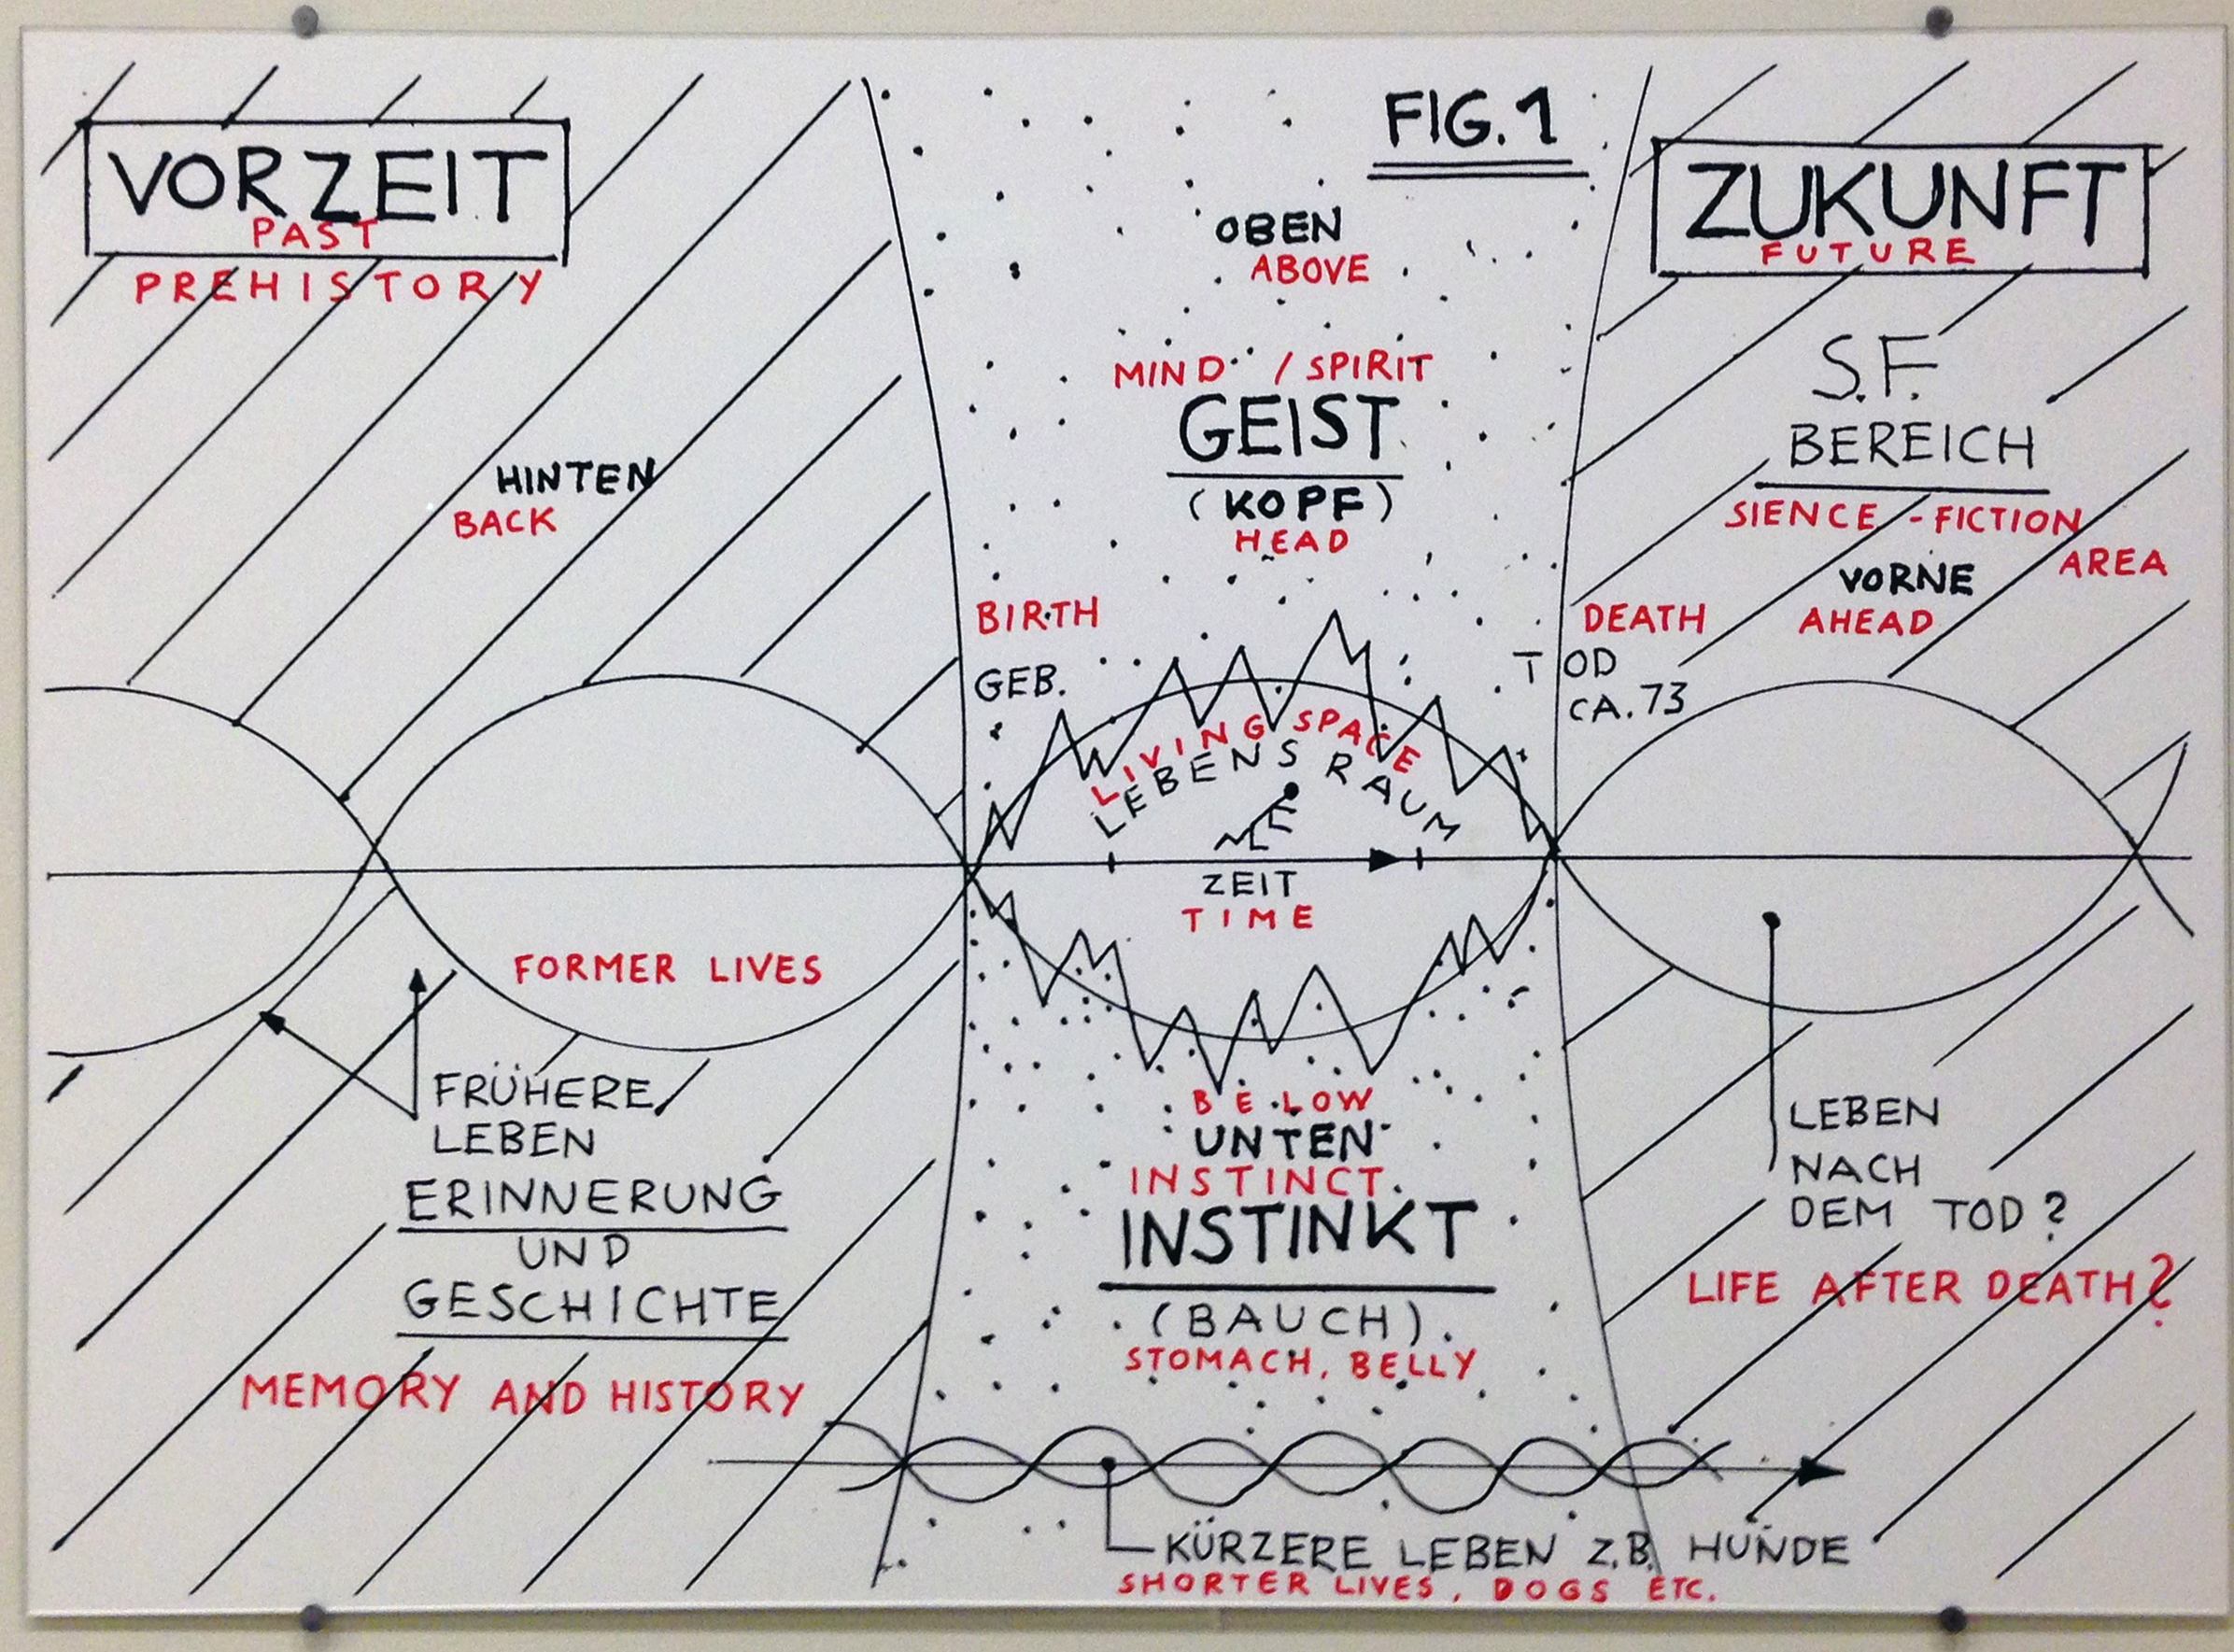 VORZEIT
PAST
PREHISTORY
HINTEN
BACK
FORMER LIVES
FRÜHERE
LEBEN
ERINNERUNG
UND
GESCHICHTE
MEMORY AND HISTORY
FIG. 1
OBEN
ABOVE
MIND / SPIRIT
GEIST
(KOPF)
HEAD
BIRTH
GEB.
LIVING SPACE
LEBENSRAUM
ZEIT
TIME
BELOW
UNTEN
INSTINCT
INSTINKT
(BAUCH)
STOMACH, BELLY
KÜRZERE LEBEN Z.B. HUNDE
SHORTER LIVES, DOGS ETC.
ZUKUNFT
FUTURE
S.F.
BEREICH
SIENCE - FICTION
AREA
VORNE
AHEAD
DEATH
TOD
CA. 73
LEBEN
NACH
DEM TOD?
LIFE AFTER DEATH?